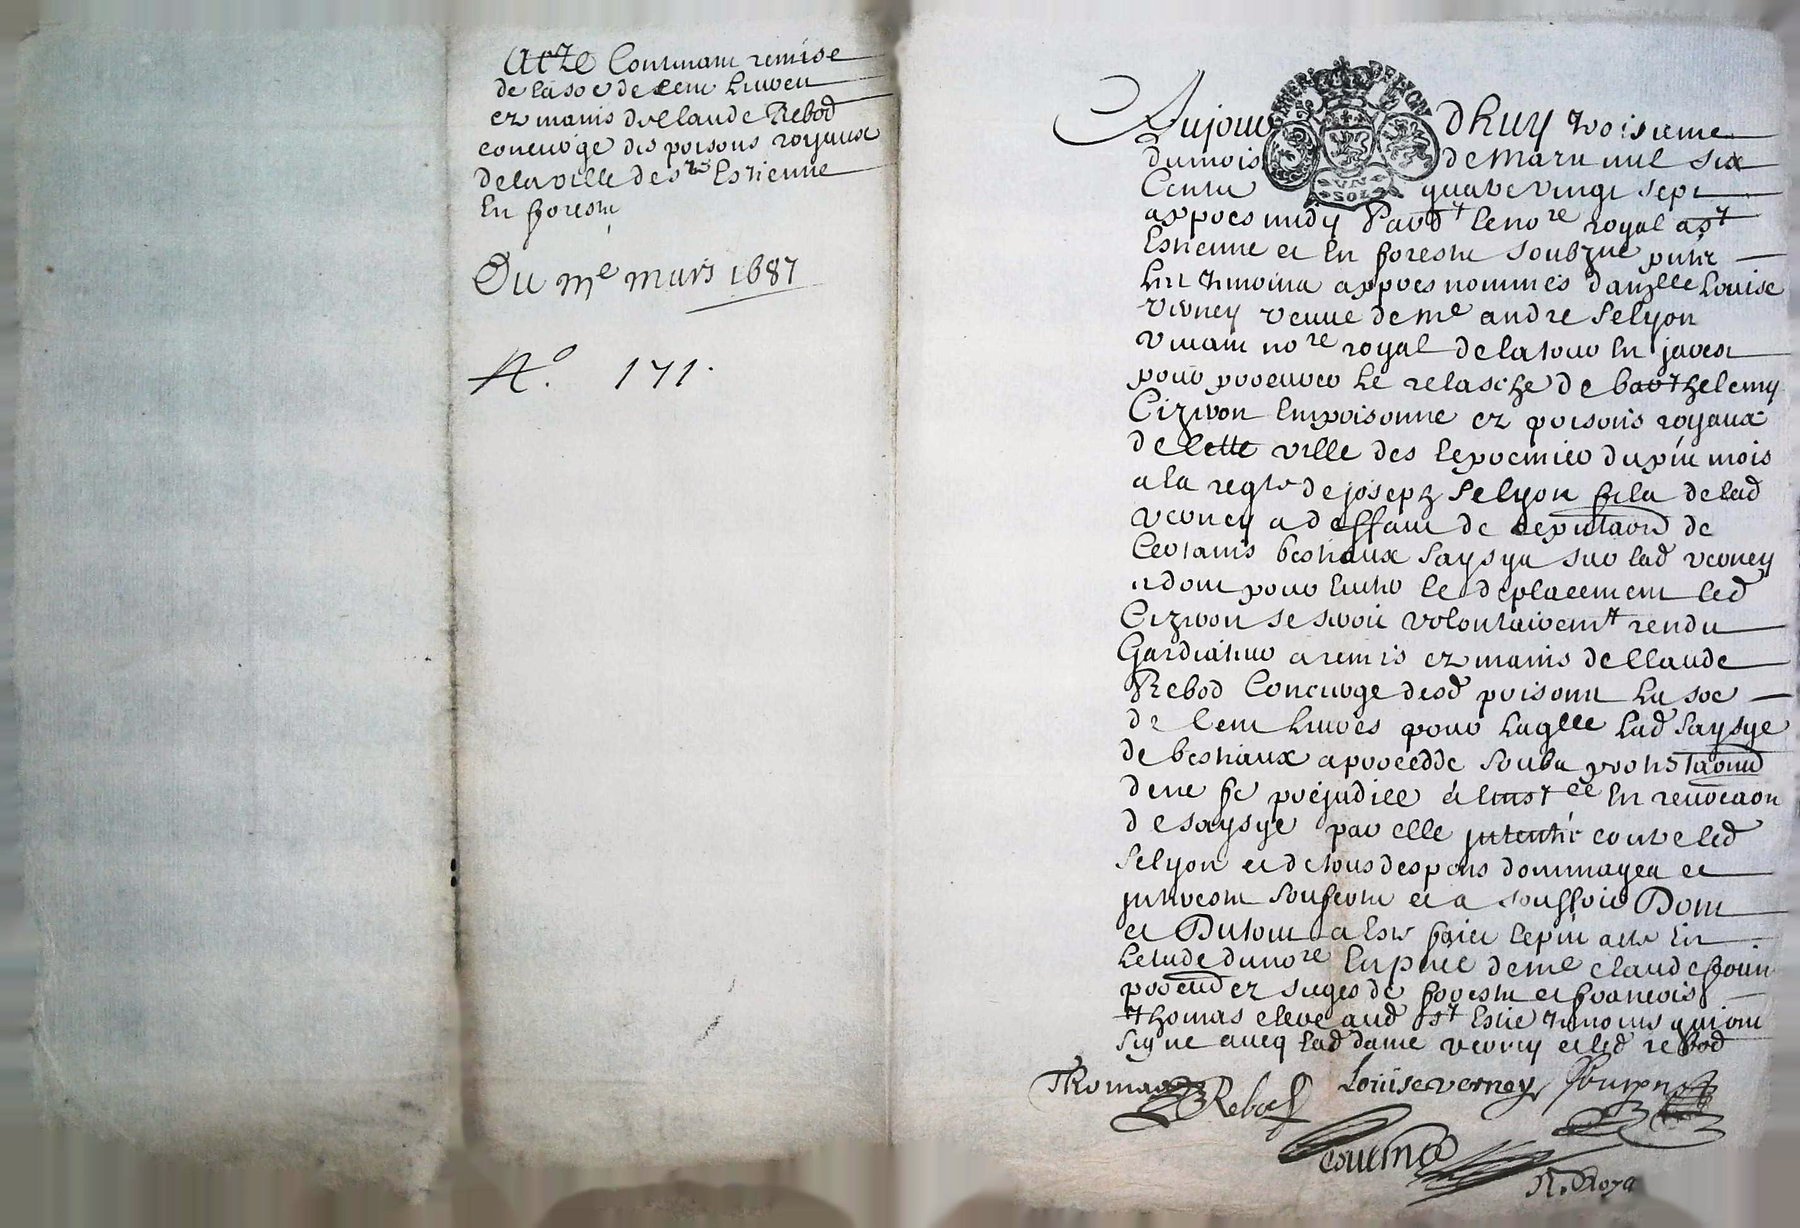 Acte Contenant remise
de la so.e de cent livres
ez mains de Claude Rebod
concierge des prisons royaux
de la ville de St Estienne
En forestz
Du 3me mars 1687
N° 171.
GENER. DE LYON
UN SOL
Aujourdhuy troisieme
du mois de mars mil six
Cents quatre vingt sept
appres midy Pardt le nore royal a St
Estienne et En forestz soubzne puntz
Les tmoins appres nommés damzlle Louise
Verney veuve de me andre Selyon
vivant nore royal de la tour En javest
pour procurer le relasche de barthelemy
Cizeron Emprisonne ez prisons royaux
de Cette ville des le premier du pnt mois
a la reqte de joseph Selyon fils de lad
verney a deffaut de
Certains bestiaux saysys sur lad verney
et dont pour Eviter le deplacement led
Cizeron se seroit volontairemt rendu
Gardiateur a remis ez mains de Claude
Rebod Concierge desd prisons La soe
de Cent Livres pour laqlle lad saysye
de bestiaux a procedde soubz protestaons
de ne se prejudicer a linstce En revocaon
de saysye par elle jntentée contre led
Selyon et de tous despens dommages et
jnterestz soufertz et a souffrir Dont
et Du tout a Este fait le pnt acte En
Lestude du nore En pnce de me claude
procur ez sieges de forestz et francois
thomas clerc aud St Estie tmoins qui ont
signe avecq lad dame verney et led rebod
Thomas Rebod Louise verney
N. Roya